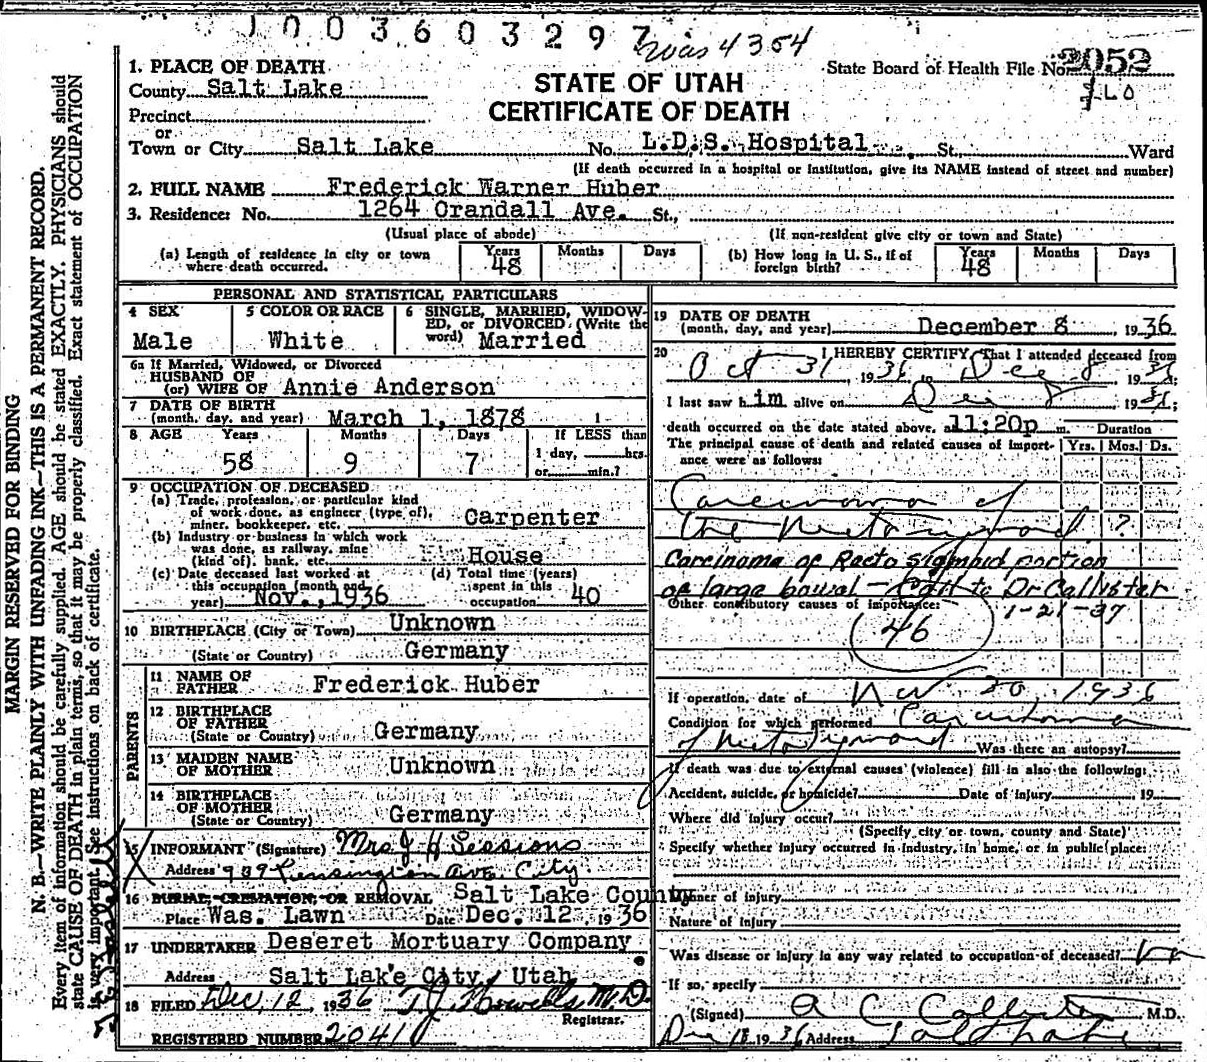 1003603297
was 4354
STATE OF UTAH
CERTIFICATE OF DEATH
State Board of Health File No. 2052
1. PLACE OF DEATH
County Salt Lake
Precinct
or
Town or City Salt Lake No. L.D.S. Hospital St., Ward
(If death occurred in a hospital or institution, give its NAME instead of street and number)
2. FULL NAME Frederick Warner Huber
3. Residence: No. 1264 Crandall Ave. St.,
(Usual place of abode) (If non-resident give city or town and State)
(a) Length of residence in city or town where death occurred. Years 48 Months Days
(b) How long in U. S., if of foreign birth? Years 48 Months Days
PERSONAL AND STATISTICAL PARTICULARS
4 SEX Male
5 COLOR OR RACE White
6 SINGLE, MARRIED, WIDOWED, or DIVORCED (Write the word) Married
6a If Married, Widowed, or Divorced
HUSBAND OF
(or) WIFE OF Annie Anderson
7 DATE OF BIRTH
(month, day, and year) March 1, 1878
8 AGE Years 58 Months 9 Days 7 If LESS than 1 day, hrs. or min.?
9 OCCUPATION OF DECEASED
(a) Trade, profession, or particular kind
of work done, as engineer (type of),
miner, bookkeeper, etc. Carpenter
(b) Industry or business in which work
was done, as railway, mine
(kind of), bank, etc. House
(c) Date deceased last worked at
this occupation (month and
year) Nov., 1936
(d) Total time (years)
spent in this
occupation 40
10 BIRTHPLACE (City or Town) Unknown
(State or Country) Germany
PARENTS
11 NAME OF FATHER Frederick Huber
12 BIRTHPLACE OF FATHER
(State or Country) Germany
13 MAIDEN NAME OF MOTHER Unknown
14 BIRTHPLACE OF MOTHER
(State or Country) Germany
15 INFORMANT (Signature) Mrs J H Sessions
Address 939 Kensington Ave. City
16 BURIAL, CREMATION, OR REMOVAL Salt Lake County
Place Was. Lawn Date Dec. 12, 1936
17 UNDERTAKER Deseret Mortuary Company
Address Salt Lake City, Utah
18 FILED Dec, 12, 1936 T.J. Howells M.D.
Registrar.
REGISTERED NUMBER 2041
19 DATE OF DEATH
(month, day, and year) December 8, 1936
20 I HEREBY CERTIFY, That I attended deceased from
Oct 31, 1936, to Dec 8, 1936;
I last saw him alive on Dec 8, 1936;
death occurred on the date stated above, at 11:20p m. Duration
The principal cause of death and related causes of importance were as follows: Yrs. Mos. Ds.
Carcinoma of
the Rectosigmoid ?
Carcinoma of Recto Sigmoid portion
of large bowel – Call to Dr Callister
1-21-37
Other contributory causes of importance:
46
If operation, date of Nov 30, 1936
Condition for which performed Carcinoma
of Rectosigmoid Was there an autopsy?
If death was due to external causes (violence) fill in also the following:
Accident, suicide, or homicide? Date of injury 19
Where did injury occur?
(Specify city or town, county and State)
Specify whether injury occurred in industry, in home, or in public place:
Manner of injury
Nature of injury
Was disease or injury in any way related to occupation of deceased?
If so, specify
(Signed) A C Callister M.D.
1936 Address Salt Lake
MARGIN RESERVED FOR BINDING
N. B.—WRITE PLAINLY WITH UNFADING INK—THIS IS A PERMANENT RECORD.
Every item of information should be carefully supplied. AGE should be stated EXACTLY. PHYSICIANS should
state CAUSE OF DEATH in plain terms, so that it may be properly classified. Exact statement of OCCUPATION
is very important. See instructions on back of certificate.